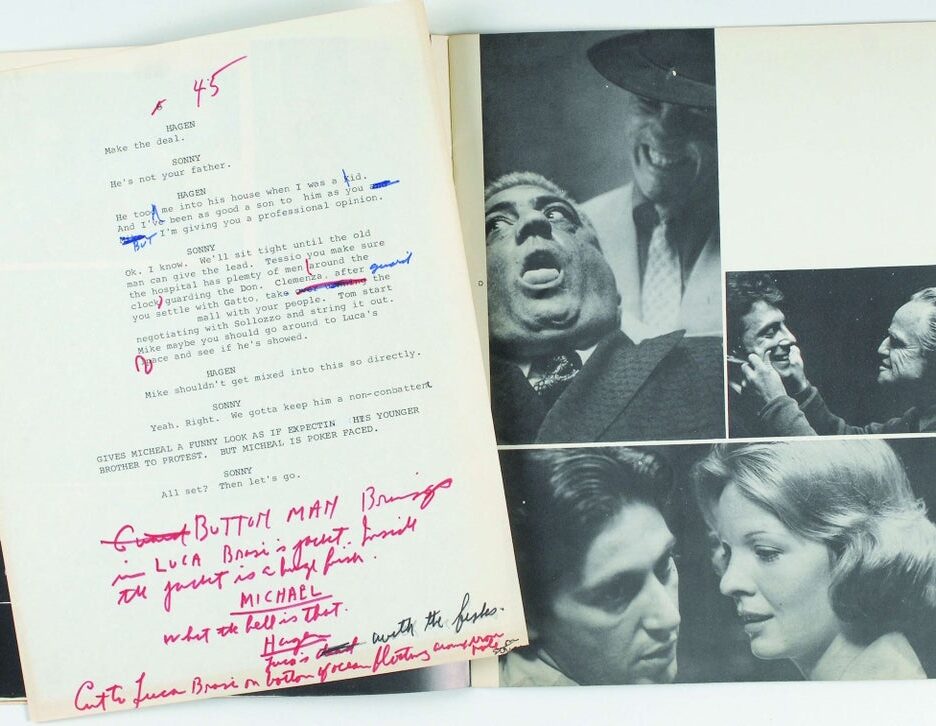 45
HAGEN
Make the deal.
SONNY
He's not your father.
HAGEN
He took me into his house when I was a kid.
And I've been as good a son to him as you
BUT I'm giving you a professional opinion.
SONNY
Ok. I know. We'll sit tight until the old
man can give the lead. Tessio you make sure
the hospital has plenty of men around the
clock guarding the Don. Clemenza, after guard
you settle with Gatto, take the
mall with your people. Tom start
negotiating with Sollozzo and string it out.
Mike maybe you should go around to Luca's
Place and see if he's showed.
HAGEN
Mike shouldn't get mixed into this so directly.
SONNY
Yeah. Right. We gotta keep him a non-conbattent
GIVES MICHEAL A FUNNY LOOK AS IF EXPECTIN HES YOUNGER
BROTHER TO PROTEST. BUT MICHEAL IS POKER FACED.
SONNY
All set? Then let's go.
BUTTON MAN Brings
in LUCA Brasi's jacket. Inside
the jacket is a huge fish.
MICHAEL
what the hell is that.
Hagen
Luca's dead with the fishs.
Cut to Luca Brasi on bottom of ocean floating around